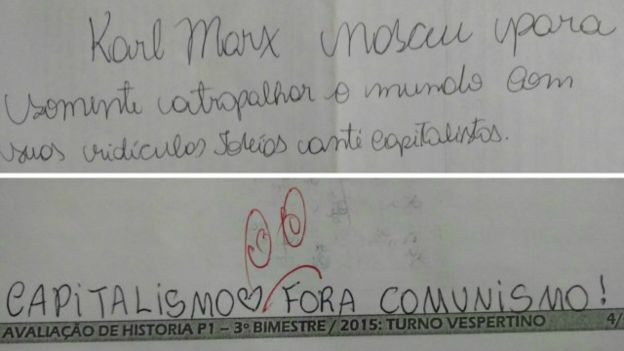 Karl Marx nasceu para
somente atrapalhar o mundo com
suas ridículas ideias anti capitalistas.
CAPITALISMO♡ FORA COMUNISMO!
AVALIAÇÃO DE HISTORIA P1 – 3º BIMESTRE / 2015: TURNO VESPERTINO 4/